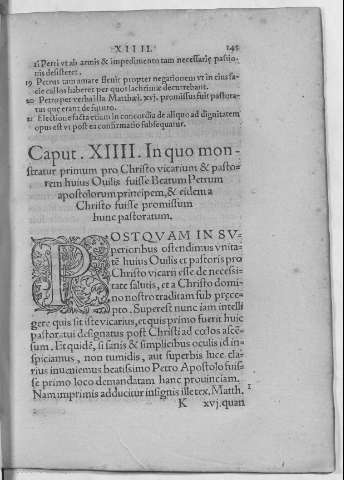 XIIII. 145
21 Petri vt ab armis & impedimento tam necessarię passio-
nis desisteret.
19 Petrus tam amare fleuit propter negationem vt in eius fa-
cie callos haberet per quos lachrimæ decurrebant.
20 Petro per verba illa Matthæi. xvj. promissus fuit pastora-
tus que erant de futuro.
21 Electione facta etiam in concordia de aliquo ad dignitatem
opus est vt post ea confirmatio subsequatur.
Caput. XIIII. In quo mon-
stratur primum pro Christo vicarium & pasto-
rem huius Ouilis fuisse Beatum Petrum
apostolorum principem, & eidem a
Christo fuisse promissum
hunc pastoratum.
POSTQVAM IN SV-
perioribus ostendimus vnita-
tē huius Ouilis et pastoris pro
Christo vicarii esse de necessi-
tate salutis, et a Christo domi-
no nostro traditam sub pręce-
pto. Superest nunc iam intelli
gere quis sit iste vicarius, et quis primo fuerit huic
pastoratui designatus post Christi ad cœlos ascē-
sum. Et quidē, si sanis & simplicibus oculis id in-
spiciamus, non tumidis, aut superbis luce cla-
rius inueniemus beatissimo Petro Apostolo fuis-
se primo loco demandatam hanc prouinciam.
Nam imprimis adducitur insignis ille tex. Matth. 1
K xvj. quan